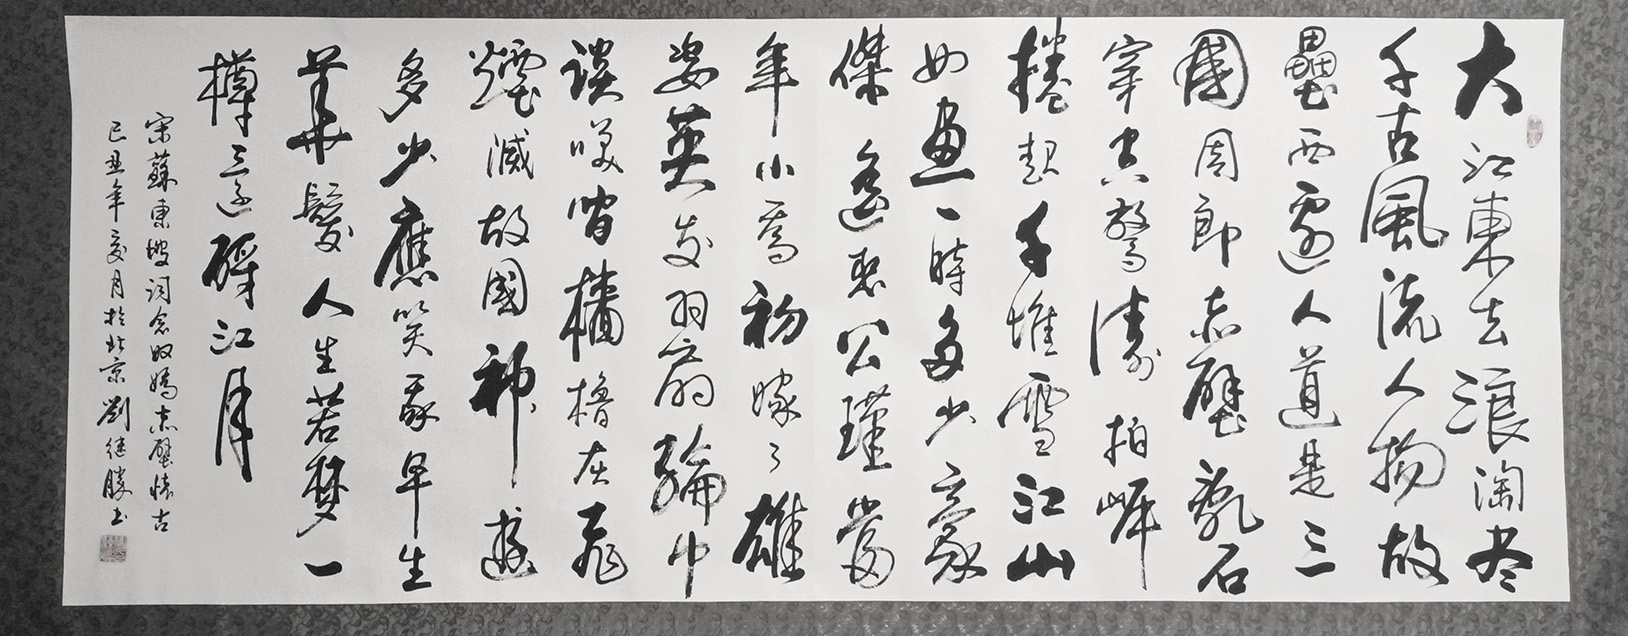 大江東去浪淘尽
千古風流人物故
壘西邊人道是三
國周郎赤壁亂石
穿空驚濤拍岸
捲起千堆雪江山
如畫一時多少豪
傑遙想公瑾當
年小喬初嫁了雄
姿英发羽扇綸巾
談笑間檣櫓灰飛
煙滅故國神遊
多少應笑我早生
華髮人生若夢一
樽還酹江月
宋蘇東坡詞念奴嬌赤壁懷古
己丑年夏月於北京劉继勝书